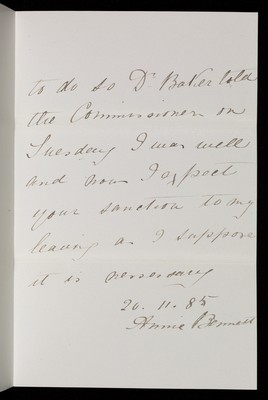 to do so Dr Baker told
the Commissioners on
Tuesday I was well
and now I expect
your sanction to my
leaving as I suppose
it is nessesary
20. 11. 85
Annie Bennett